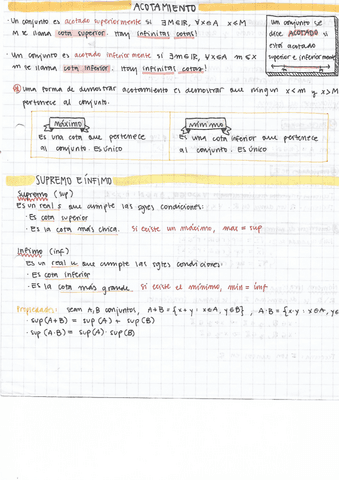 ACOTAMIENTO
· Un conjunto es acotado superiormente si ∃ M∈ℝ, ∀x∈A x≤M
M se llama cota superior. Hay infinitas cotas!
· Un conjunto es acotado inferiormente si ∃ m∈ℝ, ∀x∈A m≤x
m se llama cota inferior. Hay infinitas cotas!
Un conjunto se
dice ACOTADO si
está acotado
superior e inferiormente
m M
una forma de demostrar acotamiento es demostrar que ningún x<m y x>M
pertenece al conjunto.
máximo
Es una cota que pertenece
al conjunto. Es único
mínimo
Es una cota inferior que pertenece
al conjunto. Es único
SUPREMO E ÍNFIMO
Supremo (sup)
Es un real s que cumple las sgtes condiciones:
· Es cota superior
· Es la cota más chica. Si existe un máximo, max = sup
Infimo (inf)
Es un real u que cumple las sgtes condiciones:
· Es cota inferior
· Es la cota más grande. Si existe el mínimo, min = inf
Propiedades: sean A,B conjuntos, A+B = {x+y : x∈A, y∈B} , A·B = {x·y : x∈A, y∈
· sup(A+B) = sup(A) + sup(B)
· sup(A·B) = sup(A) · sup(B)